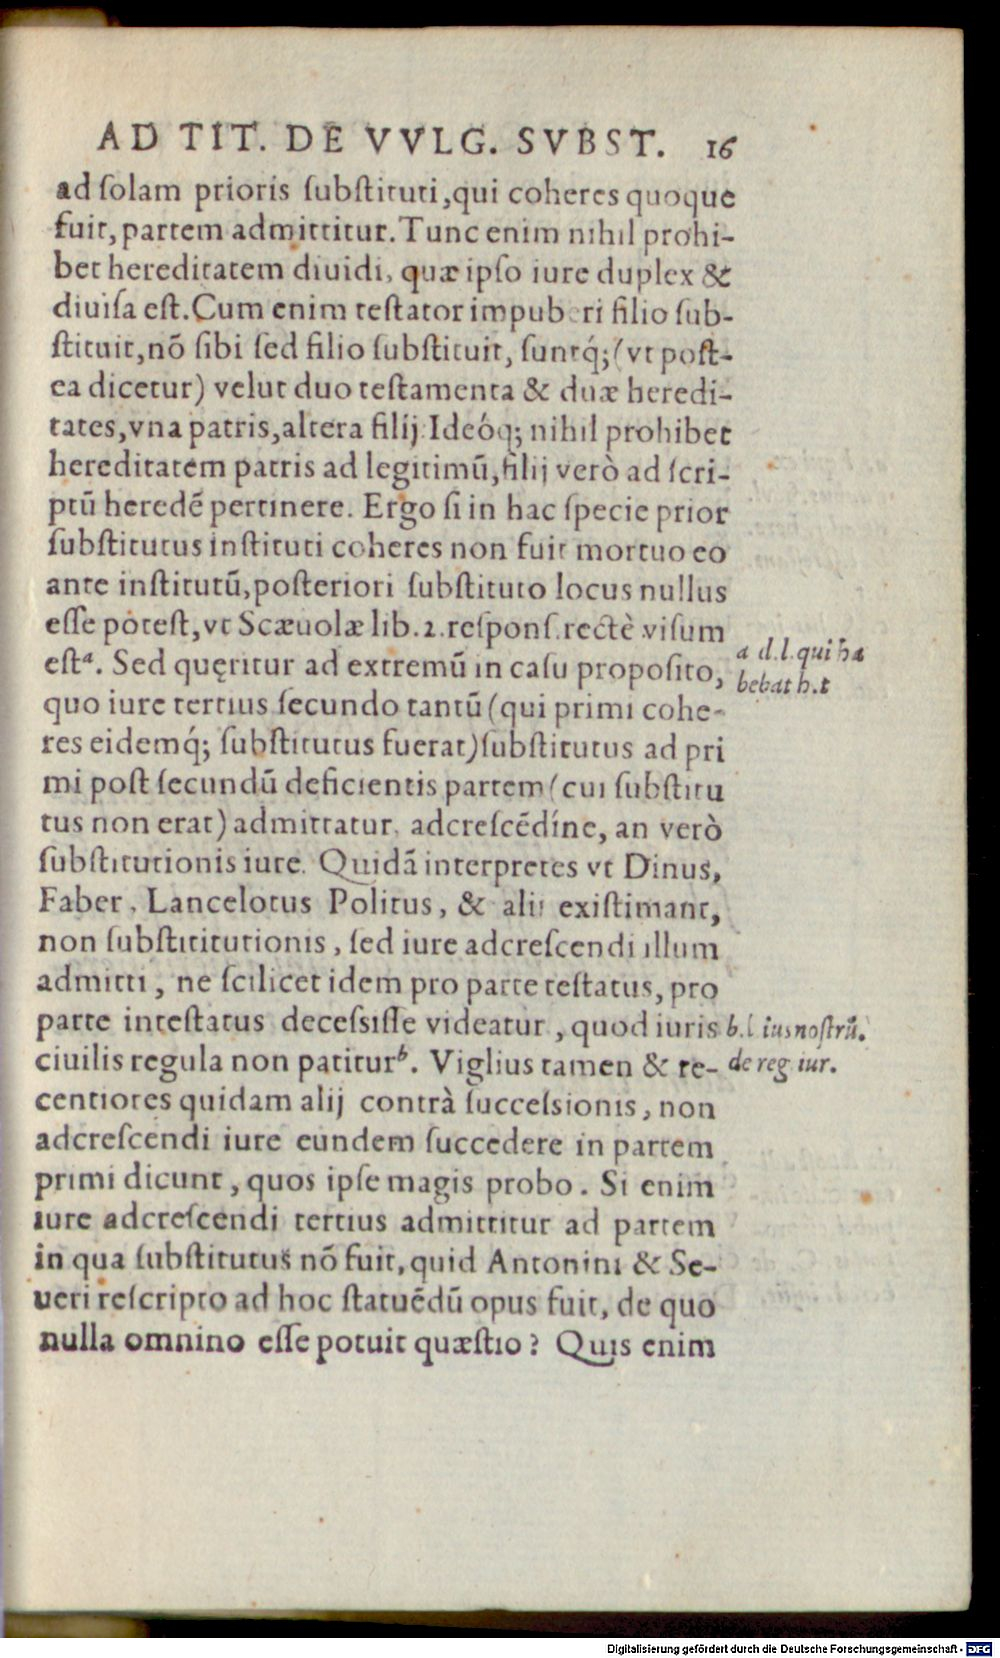 AD TIT. DE VVLG. SVBST. 16
ad ſolam prioris ſubſtituti, qui coheres quoque
fuit, partem admittitur. Tunc enim nihil prohi-
bet hereditatem diuidi, quæ ipſo iure duplex &
diuiſa eſt. Cum enim teſtator impuberi filio ſub-
ſtituit, nõ ſibi ſed filio ſubſtituit, ſuntq́; (vt poſt-
ea dicetur) velut duo teſtamenta & duæ heredi-
tates, vna patris, altera filij. Ideóq; nihil prohibet
hereditatem patris ad legitimũ, filij verò ad ſcri-
ptũ heredẽ pertinere. Ergo ſi in hac ſpecie prior
ſubſtitutus inſtituti coheres non fuit mortuo eo
ante inſtitutũ, poſteriori ſubſtituto locus nullus
eſſe poteſt, vt Scæuolæ lib. 2. reſponſ. rectè viſum
eſtᵃ. Sed quęritur ad extremũ in caſu propoſito,
a d. l. qui ha
bebat h. t
quo iure tertius ſecundo tantũ (qui primi cohe-
res eidemq́; ſubſtitutus fuerat) ſubſtitutus ad pri
mi poſt ſecundũ deficientis partem (cui ſubſtitu
tus non erat) admittatur. adcreſcẽdíne, an verò
ſubſtitutionis iure. Quidã interpretes vt Dinus,
Faber, Lancelotus Politus, & alii exiſtimant,
non ſubſtititutionis, ſed iure adcreſcendi illum
admitti, ne ſcilicet idem pro parte teſtatus, pro
parte inteſtatus deceſsiſſe videatur, quod iuris
ciuilis regula non patiturᵇ. Viglius tamen & re-
b. l. ius noſtrũ.
de reg iur.
centiores quidam alij contrà ſucceſsionis, non
adcreſcendi iure eundem ſuccedere in partem
primi dicunt, quos ipſe magis probo. Si enim
iure adcreſcendi tertius admittitur ad partem
in qua ſubſtitutus nõ fuit, quid Antonini & Se-
ueri reſcripto ad hoc ſtatuẽdũ opus fuit, de quo
nulla omnino eſſe potuit quæſtio? Quis enim
Digitalisierung gefördert durch die Deutsche Forschungsgemeinschaft - DFG